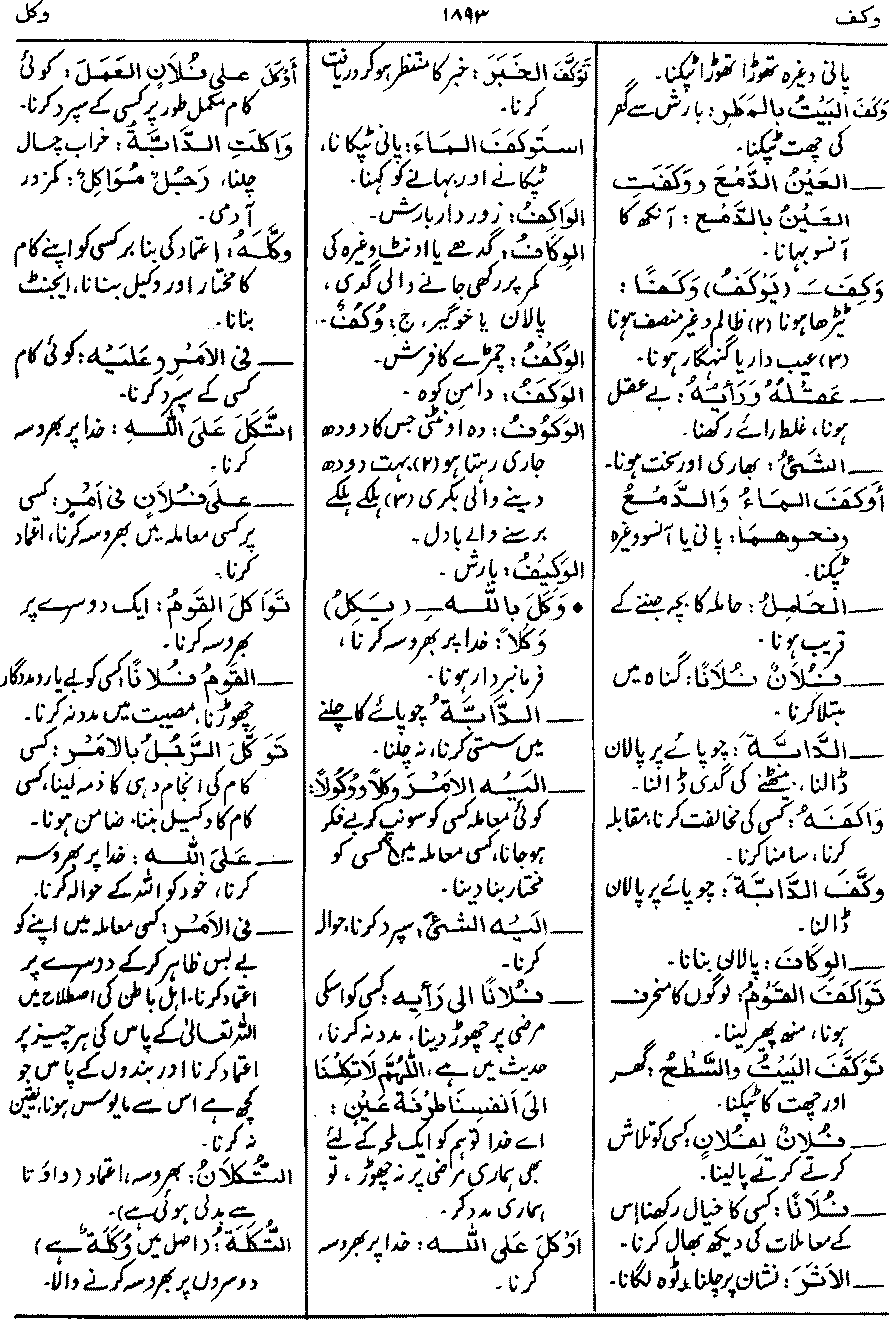 وکف
۱۸۹۳
وکل
پانی وغیرہ تھوڑا تھوڑا ٹپکنا۔
وَكَفَ البَيْتُ بالمَطَرِ: بارش سے گھر
کی چھت ٹپکنا۔
— العَيْنُ الدَّمْعَ ووَكَفَتِ
العَيْنُ بالدَّمْعِ: آنکھ کا
آنسو بہانا۔
وَكِفَ ـَـ (يَوْكَفُ) وَكَفًا:
ٹیڑھا ہونا (۲) ظالم وغیر منصف ہونا
(۳) عیب دار یا گنہگار ہونا۔
— عَقْلُهُ وَرَأيُهُ: بے عقل
ہونا، غلط رائے رکھنا۔
— الشَّئُ: بھاری اور سخت ہونا۔
أَوكَفَ المَاءُ وَالدَّمْعُ
ونحوهما: پانی یا آنسو وغیرہ
ٹپکنا۔
— الحَامِلُ: حاملہ کا بچہ جننے کے
قریب ہونا۔
— فُلَانٌ فُلَانًا: گناہ میں
مبتلا کرنا۔
— الدَّابَّةَ: چوپائے پر پالان
ڈالنا، بیٹھنے کی گدی ڈالنا۔
وَاكَفَهُ: کسی کی مخالفت کرنا، مقابلہ
کرنا، سامنا کرنا۔
وكَّفَ الدَّابَّةَ: چوپائے پر پالان
ڈالنا۔
— الوِكَافَ: پالان بنانا۔
تَوَاكَفَ القَوْمُ: لوگوں کا منحرف
ہونا، منھ پھیر لینا۔
تَوَكَّفَ البَيْتُ والسَّطْحُ: گھر
اور چھت کا ٹپکنا۔
— فُلَانٌ لفُلَانٍ: کسی کو تلاش
کرتے کرتے پالینا۔
— فُلَانًا: کسی کا خیال رکھنا، اس
کے معاملات کی دیکھ بھال کرنا۔
— الاَثَرَ: نشان پر چلنا، ٹوہ لگانا۔
تَوَكَّفَ الخَبَرَ: خبر کا منتظر ہو کر دریافت
کرنا۔
استَوكَفَ المَاءَ: پانی ٹپکانا،
ٹپکانے اور بہانے کو کہنا۔
الوَاكِفُ: زور دار بارش۔
الوِكَافُ: گدھے یا اونٹ وغیرہ کی
کمر پر رکھی جانے والی گدی،
پالان یا خوگیر، ج: وُكُفٌ۔
الوَكْفُ: چمڑے کا فرش۔
الوَكَفُ: دامن کوہ۔
الوَكُوْفُ: وہ اونٹنی جس کا دودھ
جاری رہتا ہو (۲) بہت دودھ
دینے والی بکری (۳) ہلکے ہلکے
برسنے والے بادل۔
الوَكِيْفُ: بارش۔
• وَكَلَ باللّٰهِ ـِـ (يَكِلُ)
وَكْلاً: خدا پر بھروسہ کرنا،
فرمانبردار ہونا۔
— الدَّابَّةُ: چوپائے کا چلنے
میں سستی کرنا، نہ چلنا۔
— اليْهِ الاَمْرَ وَكْلاً ووُكُولاً:
کوئی معاملہ کسی کو سونپ کر بے فکر
ہو جانا، کسی معاملہ میں کسی کو
مختار بنا دینا۔
— اليْهِ الشَّئَ: سپرد کرنا، حوالہ
کرنا۔
— فُلَانًا الى رَأيِه: کسی کو اسکی
مرضی پر چھوڑ دینا، مدد نہ کرنا،
حدیث میں ہے، اَللّٰهُمَّ لَا تَكِلْنَا
الىٰ اَنفُسِنَا طَرْفَةَ عَيْنٍ:
اے خدا تو ہم کو ایک لمحہ کے لئے
بھی ہماری مرضی پر نہ چھوڑ، تو
ہماری مدد کر۔
اَوْكَلَ عَلى اللّٰهِ: خدا پر بھروسہ
کرنا۔
أَوْكَلَ علىٰ فُلَانٍ العَمَلَ: کوئی
کام مکمل طور پر کسی کے سپرد کرنا۔
وَاكَلَتِ الدَّابَّةُ: خراب چال
چلنا، رَجُلٌ مُوَاكِلٌ: کمزور
آدمی۔
وكَّلَهُ: اعتماد کی بنا پر کسی کو اپنے کام
کا مختار اور وکیل بنانا، ایجنٹ
بنانا۔
— فِى الاَمْرِ وعَلَيْهِ: کوئی کام
کسی کے سپرد کرنا۔
اتَّكَلَ عَلىَ اللّٰهِ: خدا پر بھروسہ
کرنا۔
— عَلىٰ فُلَانٍ فِى اَمْرٍ: کسی
پر کسی معاملہ میں بھروسہ کرنا، اعتماد
کرنا۔
تَوَاكَلَ القَوْمُ: ایک دوسرے پر
بھروسہ کرنا۔
— القَوْمُ فُلَانًا: کسی کو بے یار و مددگار
چھوڑنا، مصیبت میں مدد نہ کرنا۔
تَوَكَّلَ الرَّجُلُ بالاَمْرِ: کسی
کام کی انجام دہی کا ذمہ لینا، کسی
کام کا وکیل بننا، ضامن ہونا۔
— عَلىَ اللّٰهِ: خدا پر بھروسہ
کرنا، خود کو اللہ کے حوالہ کرنا۔
— فِى الاَمْرِ: کسی معاملہ میں اپنے کو
بے بس ظاہر کر کے دوسرے پر
اعتماد کرنا، اہل باطن کی اصطلاح میں
اللہ تعالیٰ کے پاس کی ہر چیز پر
اعتماد کرنا اور بندوں کے پاس جو
کچھ ہے اس سے مایوس ہونا، یقین
نہ کرنا۔
التُّكْلَانُ: بھروسہ، اعتماد (واؤ تا
سے بدلی ہوئی ہے)۔
التُّكَلَةُ: (اصل میں وُكَلَةٌ ہے)
دوسروں پر بھروسہ کرنے والا۔